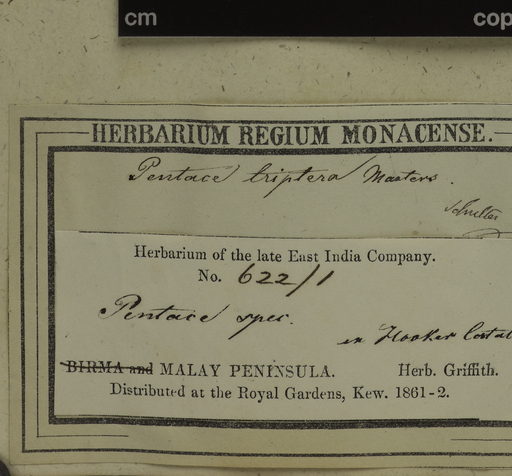 cm
cop
HERBARIUM REGIUM MONACENSE.
Pentace triptera Masters.
Herbarium of the late East India Company.
No. 622/1
Pentace spec.
Hooker
BIRMA and MALAY PENINSULA. Herb. Griffith.
Distributed at the Royal Gardens, Kew. 1861-2.